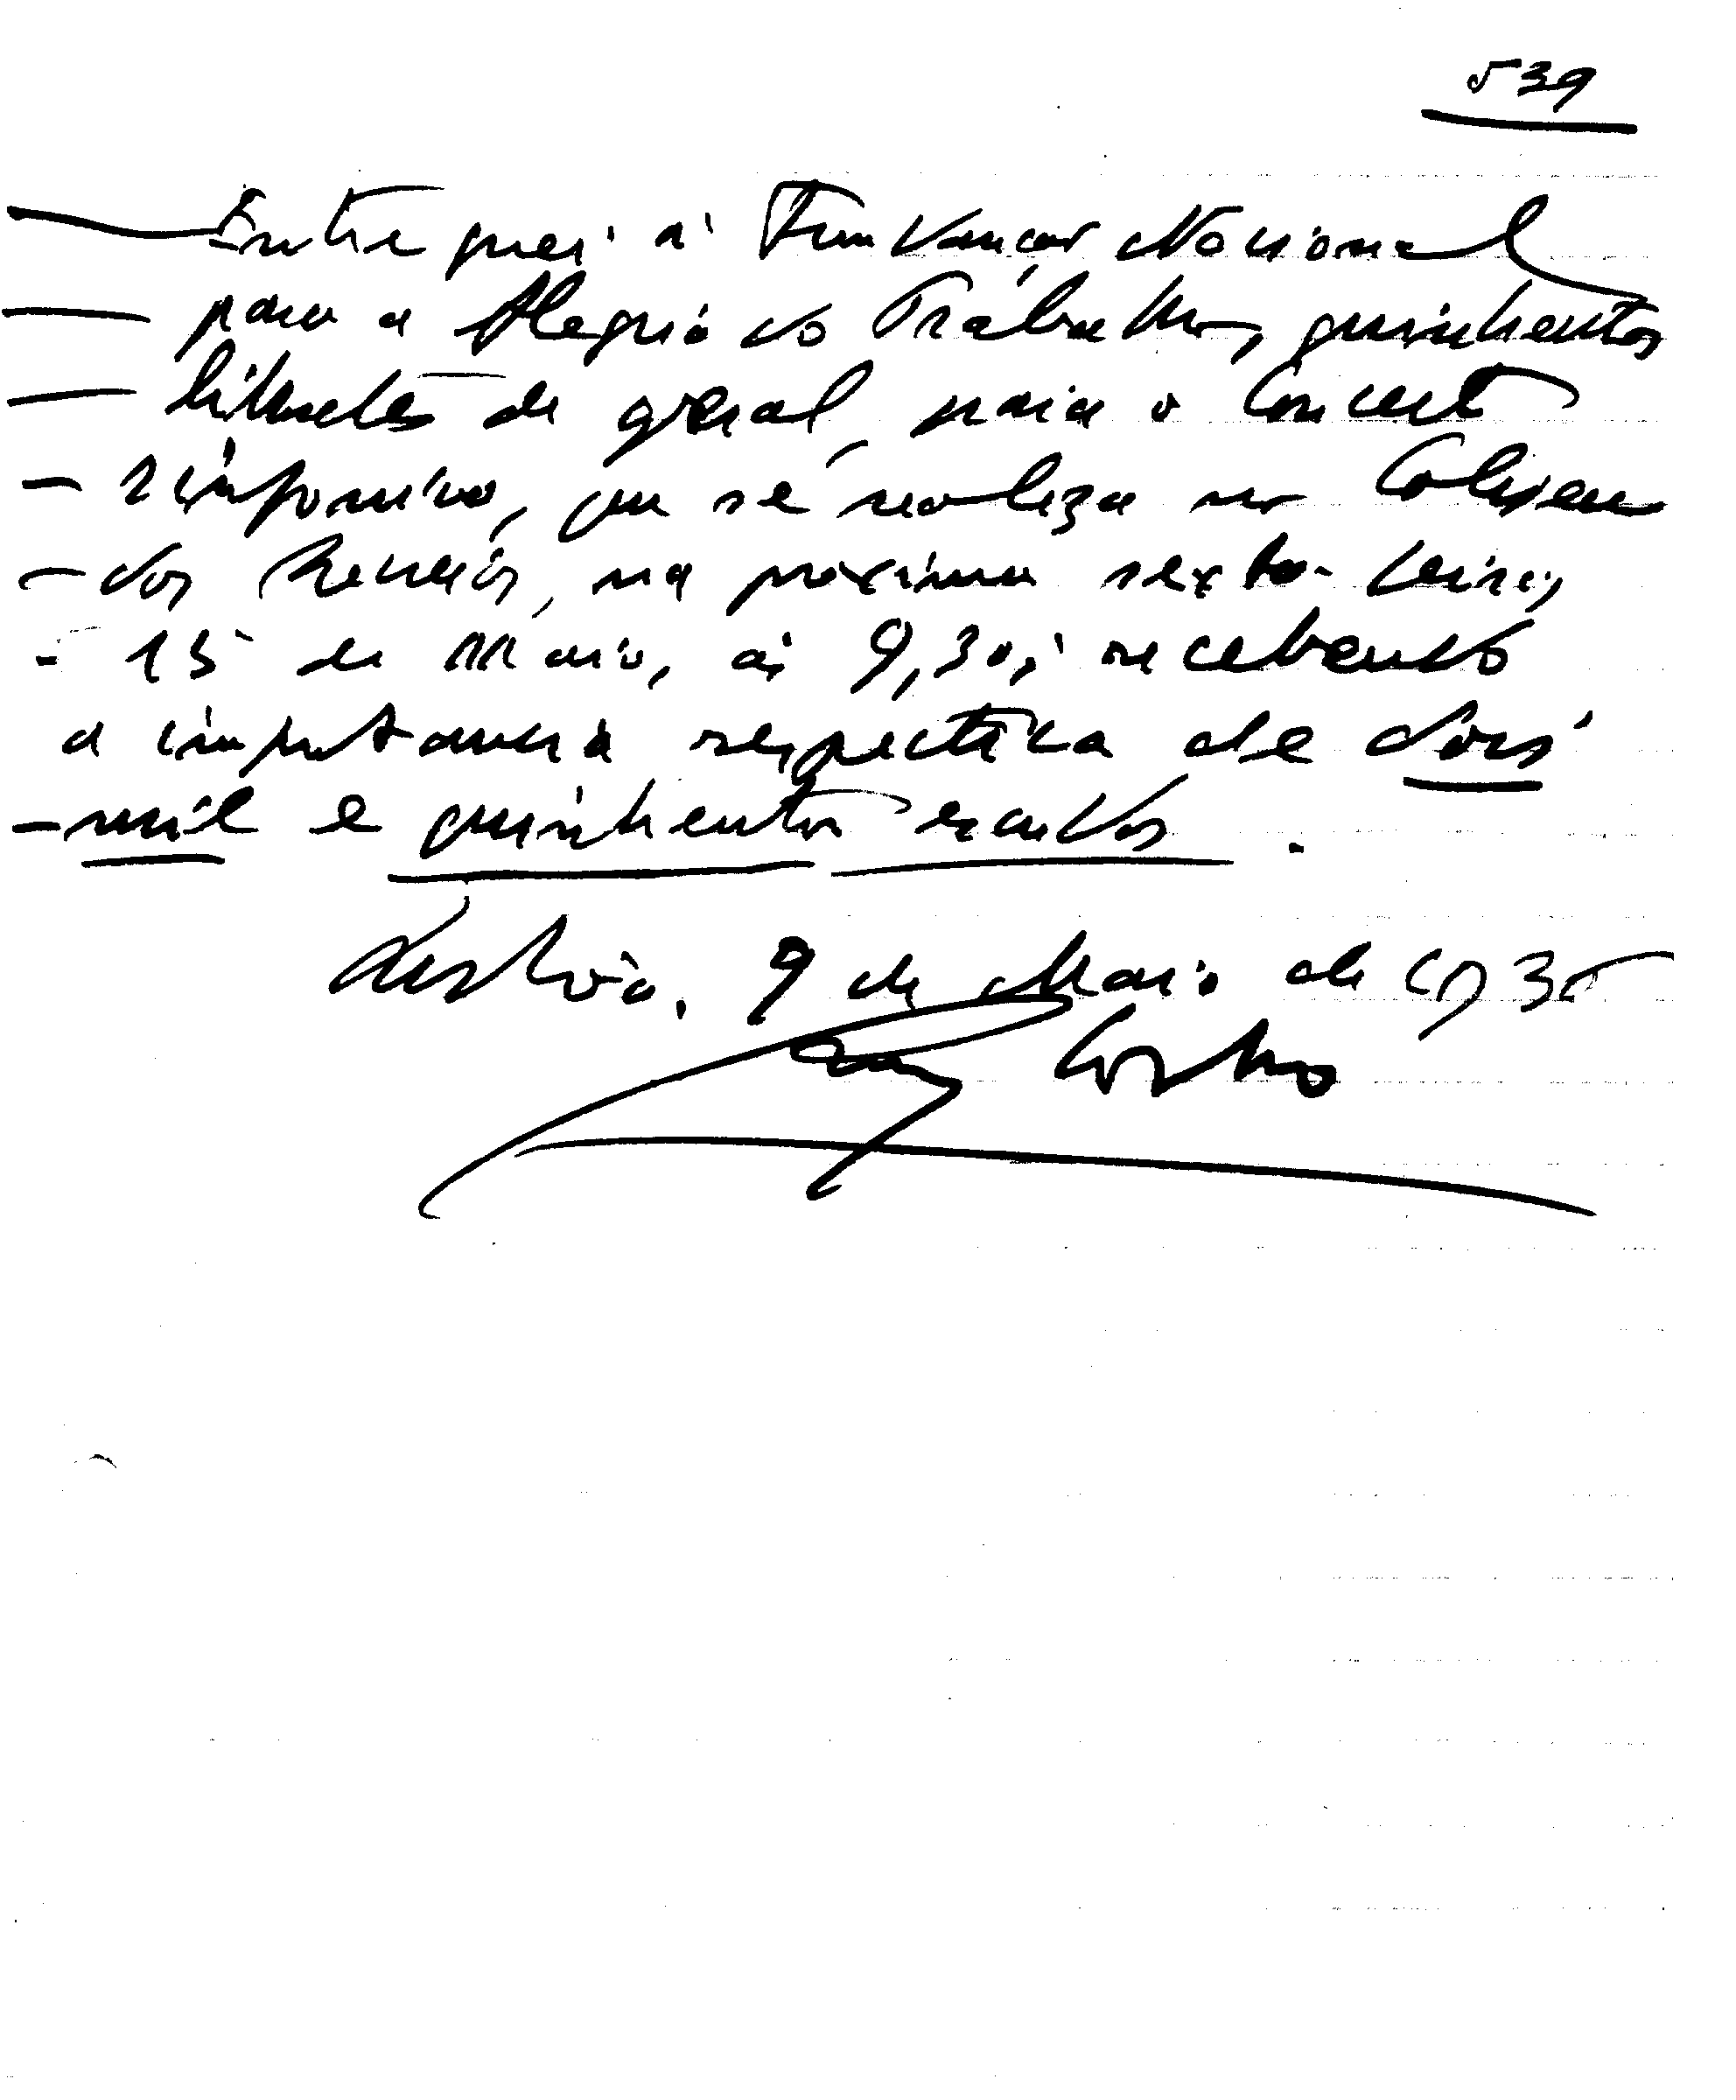 539
Entreguei à Fundação Nacional
para a Alegria no Trabalho, quinhentos
bilhetes de geral, para o Concerto
sinfonico, que se realiza no Coliseu
dos Recreios, na proxima sexta-feira,
15 de Maio, ás 9,30, recebendo
a importancia respectiva de dois
mil e quinhentos escudos.
Lisboa, 9 de Maio de 1936
Ruy Coelho